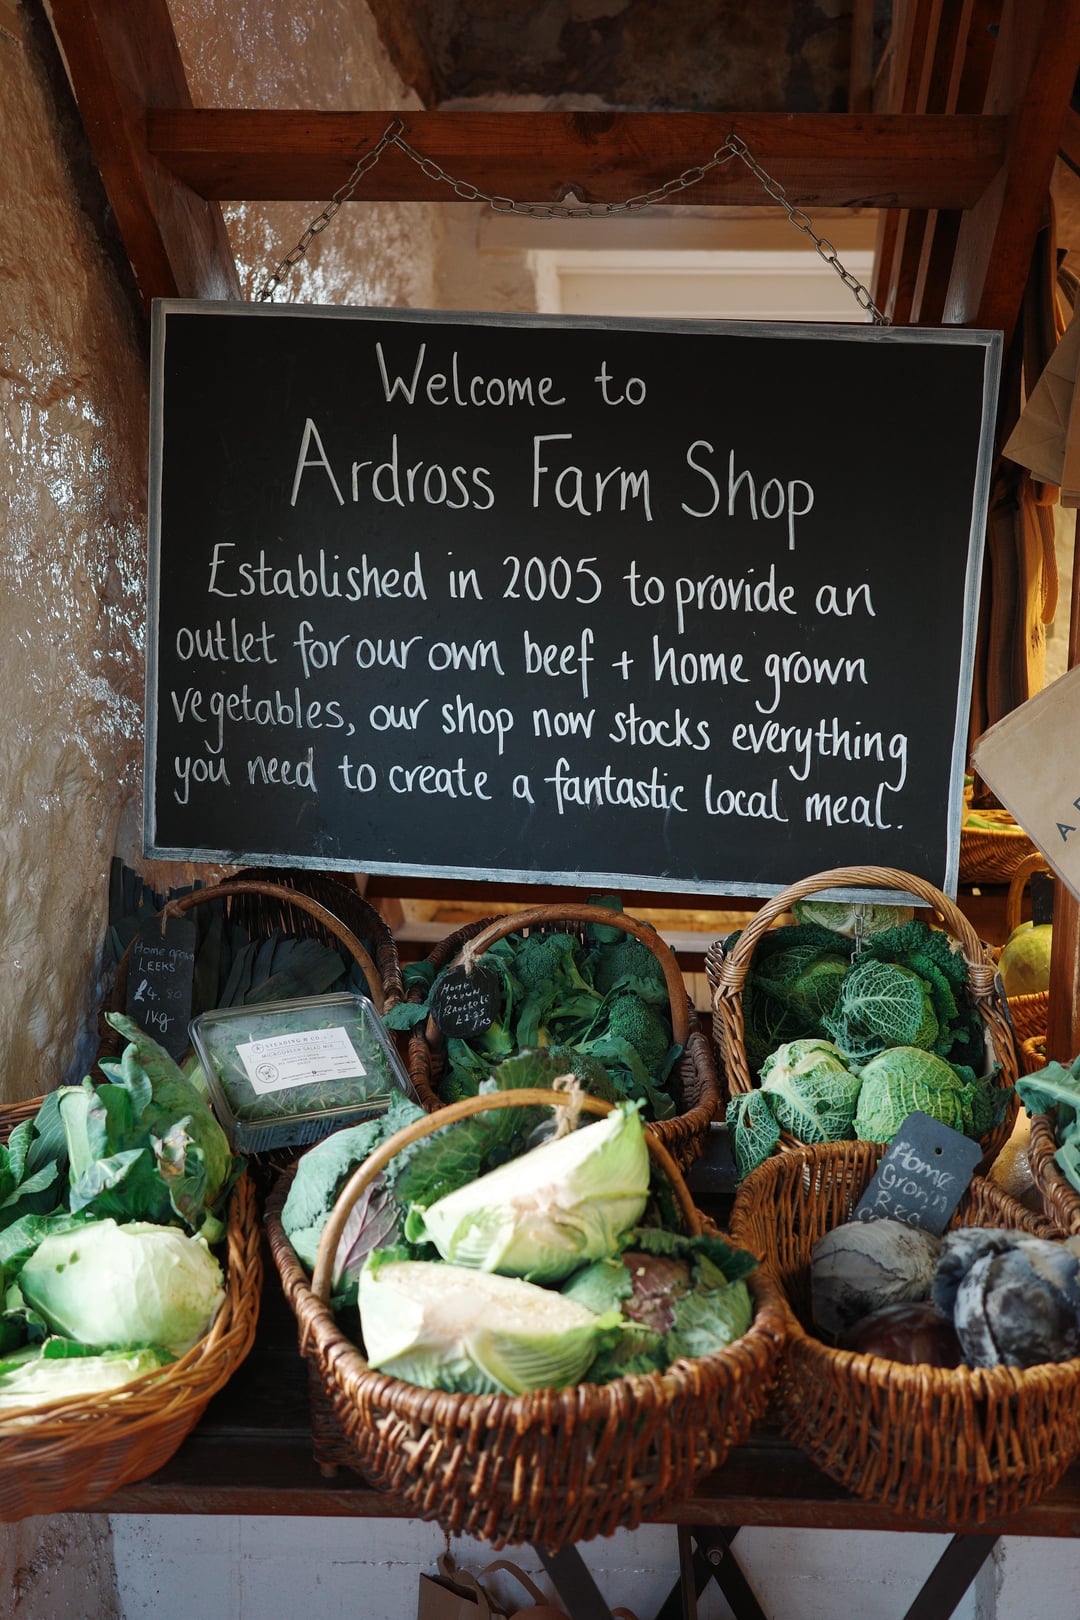 Welcome to
Ardross Farm Shop
Established in 2005 to provide an
outlet for our own beef + home grown
vegetables, our shop now stocks everything
you need to create a fantastic local meal.
Home grown
LEEKS
£4.80
1kg
Home
grown
Broccoli
STEADING & CO.
MICROGREEN SALAD MIX
Home
Grown
Red